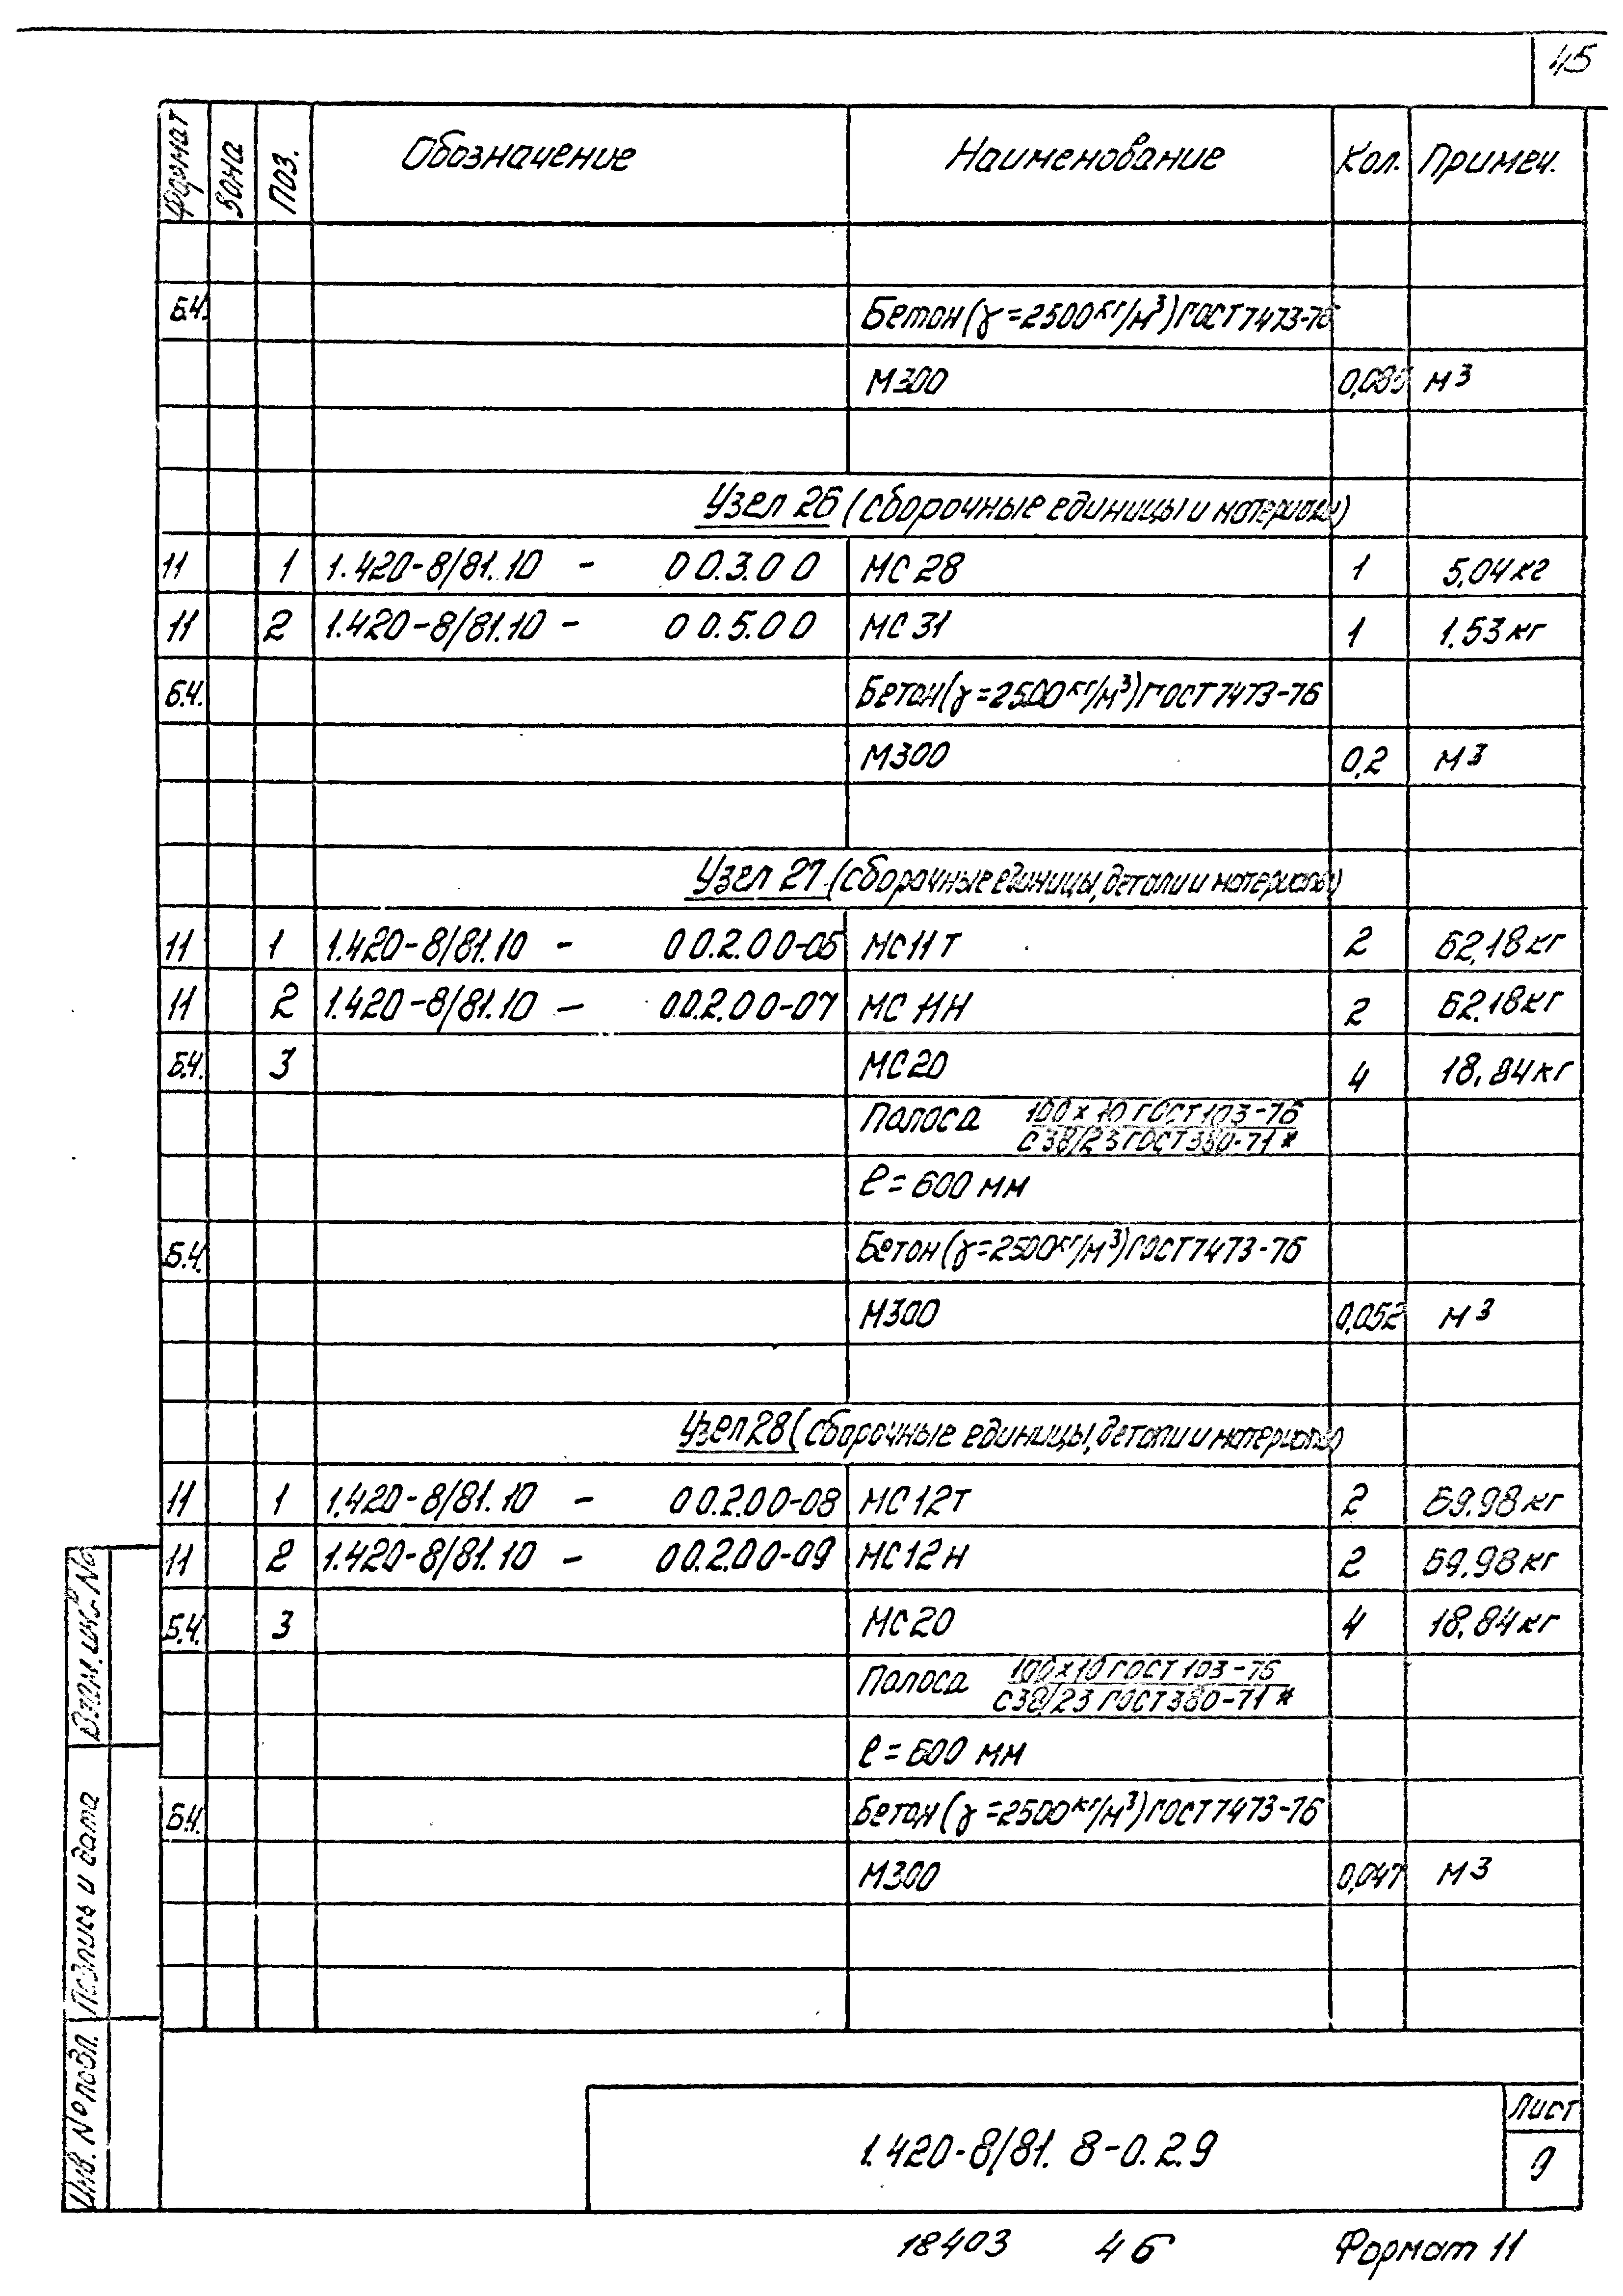 45
Формат Зона Поз. Обозначение Наименование Кол. Примеч.
Б.Ч. Бетон (γ=2500кг/м³) ГОСТ 7473-76
М300 м3
Узел 26 (сборочные единицы и материалы)
11 1 1.420-8/81.10 - 00.3.00 МС 28 1 5,04 кг
11 2 1.420-8/81.10 - 00.5.00 МС 31 1 1.53 кг
Б.Ч. Бетон (γ=2500кг/м³) ГОСТ 7473-76
М300 0,2 м3
Узел 27 (сборочные единицы, детали и материалы)
11 1 1.420-8/81.10 - 00.2.00-06 МС11Т 2 62,18 кг
11 2 1.420-8/81.10 - 00.2.00-07 МС 11Н 2 62.18 кг
Б.Ч. 3 МС20 4 18,84 кг
Полоса 100×10 ГОСТ 103-76
С38/23 ГОСТ 380-71*
ℓ=600 мм
Б.Ч. Бетон (γ=2500кг/м³) ГОСТ 7473-76
М300 0,052 м3
Узел 28 (сборочные единицы, детали и материалы)
11 1 1.420-8/81.10 - 00.2.00-08 МС12Т 2 69.98 кг
11 2 1.420-8/81.10 - 00.2.00-09 МС12Н 2 69.98 кг
Б.Ч. 3 МС20 4 18,84 кг
Полоса 100×10 ГОСТ 103-76
С38/23 ГОСТ 380-71*
ℓ=600 мм
Б.Ч. Бетон (γ=2500кг/м³) ГОСТ 7473-76
М300 0,047 м3
Взам. инв. №
Подпись и дата
Инв. № подл.
1.420-8/81. 8-0.2.9
Лист
9
18403 46 Формат 11